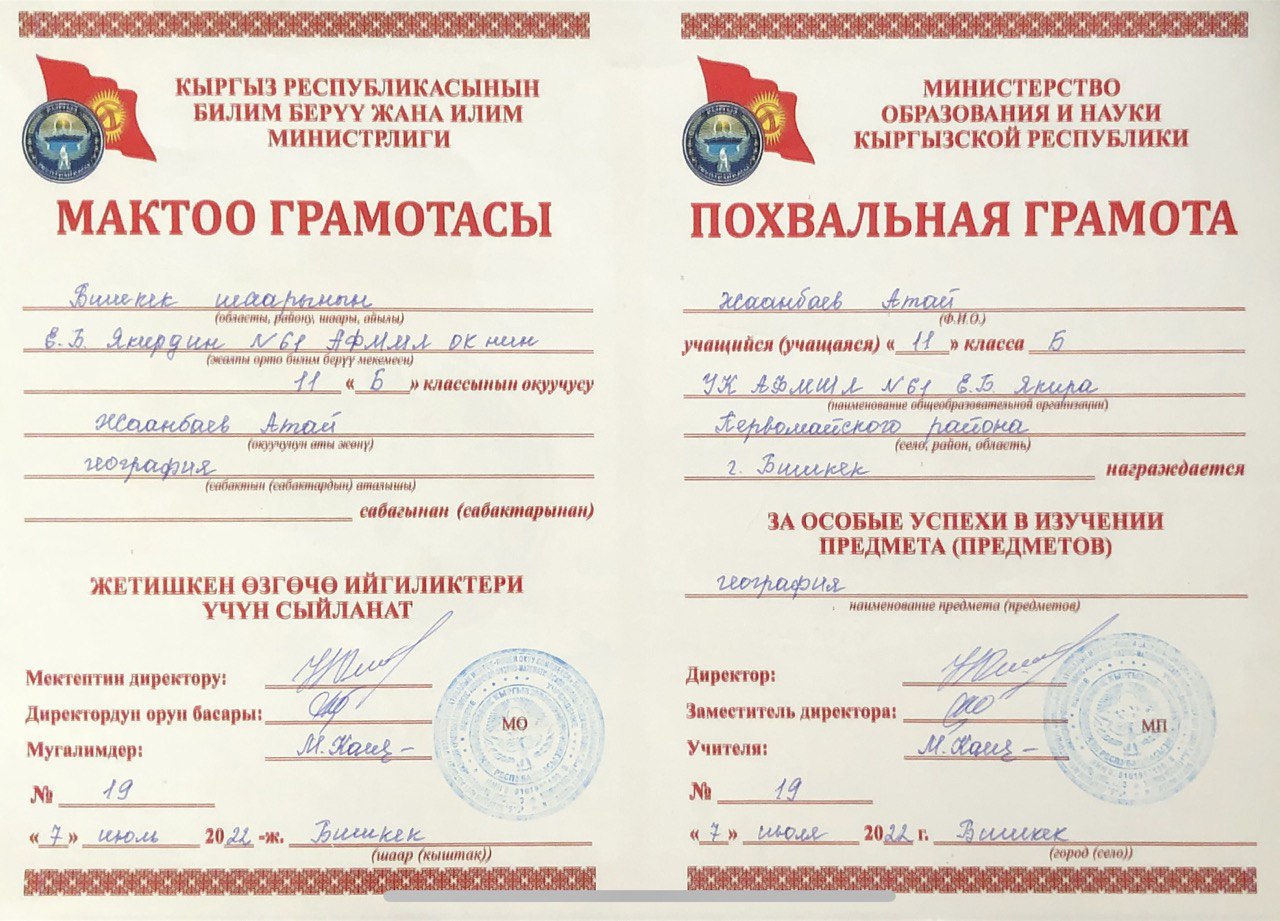 КЫРГЫЗ РЕСПУБЛИКАСЫНЫН
БИЛИМ БЕРҮҮ ЖАНА ИЛИМ
МИНИСТРЛИГИ
МАКТОО ГРАМОТАСЫ
Бишкек шаарынын
(областы, району, шаары, айылы)
Е.Б. Якирдин №61 АФММЛ ОК нин
(жалпы орто билим берүү мекемеси)
11 « Б » классынын окуучусу
Жаанбаев Атай
(окуучунун аты жөнү)
география
(сабактын (сабактардын) аталышы)
сабагынан (сабактарынан)
ЖЕТИШКЕН ӨЗГӨЧӨ ИЙГИЛИКТЕРИ
ҮЧҮН СЫЙЛАНАТ
Мектептин директору:
Директордун орун басары:
МО
Мугалимдер:
№ 19
« 7 » июль 2022 -ж. Бишкек
(шаар (кыштак))
МИНИСТЕРСТВО
ОБРАЗОВАНИЯ И НАУКИ
КЫРГЫЗСКОЙ РЕСПУБЛИКИ
ПОХВАЛЬНАЯ ГРАМОТА
Жаанбаев Атай
(Ф.И.О.)
учащийся (учащаяся) « 11 » класса Б
УК АФМШЛ №61 Е.Б Якира
(наименование общеобразовательной организации)
Первомайского района
(село, район, область)
г. Бишкек награждается
ЗА ОСОБЫЕ УСПЕХИ В ИЗУЧЕНИИ
ПРЕДМЕТА (ПРЕДМЕТОВ)
география
наименование предмета (предметов)
Директор:
Заместитель директора:
МП
Учителя:
№ 19
« 7 » июля 2022 г. Бишкек
(город (село))